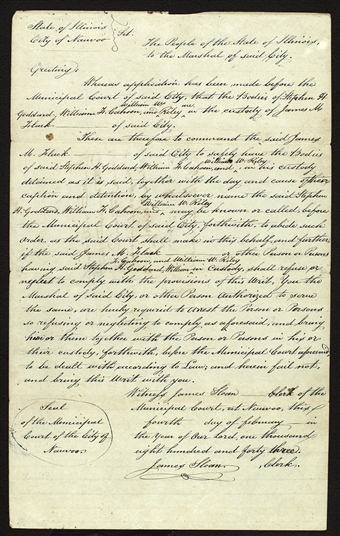 State of Illinois
City of Nauvoo } Sct.
The People of the State of Illinois,
to the Marshal of said City.
Greeting;
Whereas application has been made before the
Municipal Court of said City, that the Bodies of Stephen H.
William W. are
Goddard, William F. Cahoon, and Riley, in the custody of James M.
Flack of said City.
These are therefore to command the said James
M. Flack of said City to safely have the Bodies
William W. Riley
of said Stephen H. Goddard, William F. Cahoon, and, in his custody
detained as it is said, together with the day and cause of their
caption and detention, by whatsoever name the said Stephen
William W. Riley
H. Goddard, William F. Cahoon, and, may be known or called, before
the Municipal Court of said City, forthwith, to abide such
order, as the said Court shall make in this behalf, and further
if the said James M. Flack other Person or Persons
F. Cahoon, and William W. Riley
having said Stephen H. Goddard, William in Custody, shall refuse, or
neglect to comply with the provisions of this Writ, You the
Marshal of said City, or other Person Authorized to serve
the same, are hereby required to arrest the Person or Persons
so refusing or neglecting to comply as aforesaid, and bring
him or them together with the Person or Persons in his or
their custody, forthwith, before the Municipal Court aforesaid,
to be dealt with according to Law; and herein fail not,
and bring this Writ with you.
Witness James Sloan Clerk of the
Seal
Municipal Court, at Nauvoo, this
of the Municipal
fourth day of february in
Court of the City of
the Year of Our Lord, one thousand
Nauvoo.
eight hundred and forty three.
James Sloan, Clerk.